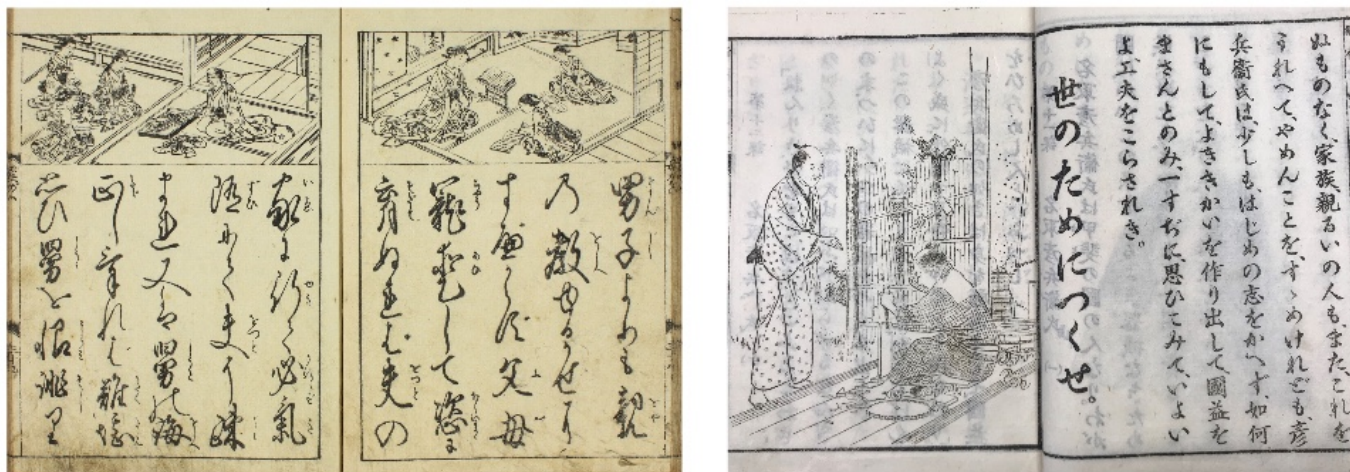 男子よりも親
の教ゆるかせに
すべからず父母
寵愛して恣に
育ぬれば夫の
家に行て必氣
随にて夫に疎
まれ又は舅の誨
正しければ難堪
思ひ舅を恨誹り
ぬものなく、家族親るいの人も、また、これを
うれへて、やめんことを、すゝめけれども、彦
兵衞氏は、少しも、はじめの志をかへず、如何
にもして、よききかいを作り出して、國益を
まさんとのみ、一すぢに思ひこみて、いよい
よ、工夫をこらされき。
世のためにつくせ。